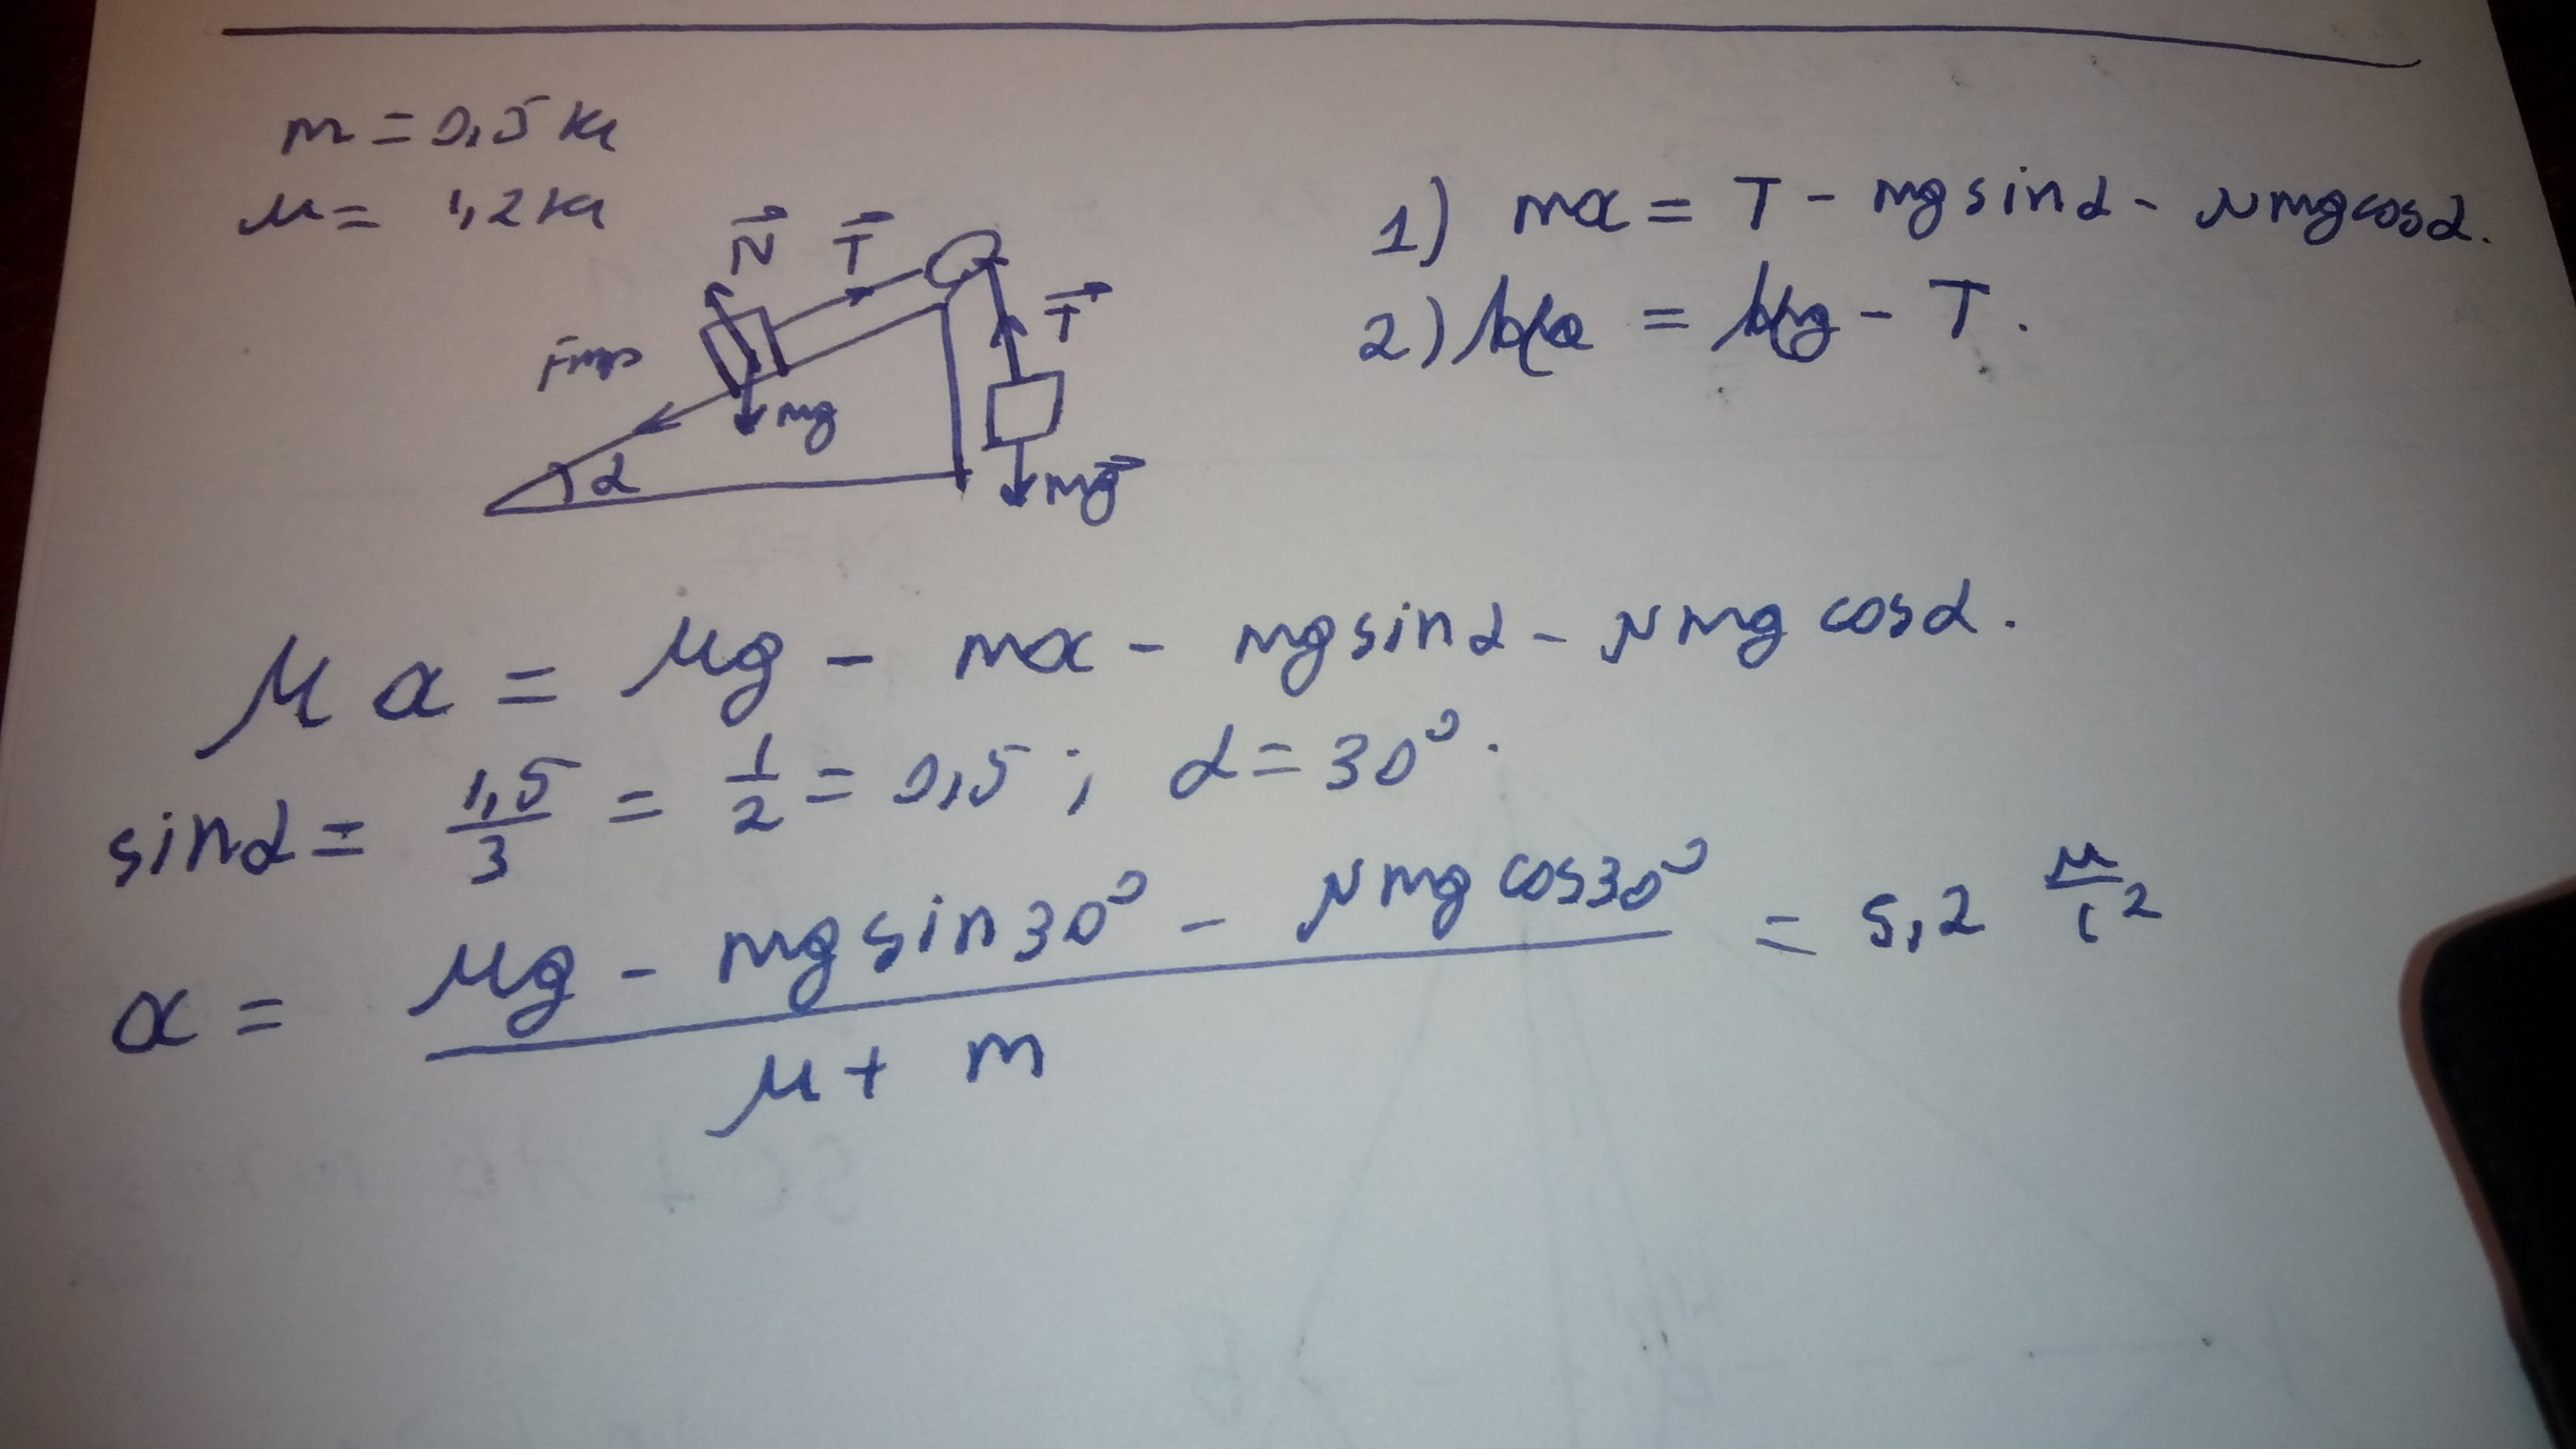 m = 0,5 кг
M = 1,2 кг
N T
T
Fтр
mg
α
mg
1) ma = T - mg sinα - μmg cosα.
2) Ma = Mg - T.
M a = Mg - ma - mg sinα - μmg cosα.
sinα = 1,5/3 = 1/2 = 0,5 ; α = 30°.
a = (Mg - mg sin30° - μmg cos30°)/(M + m) = 5,2 м/с²